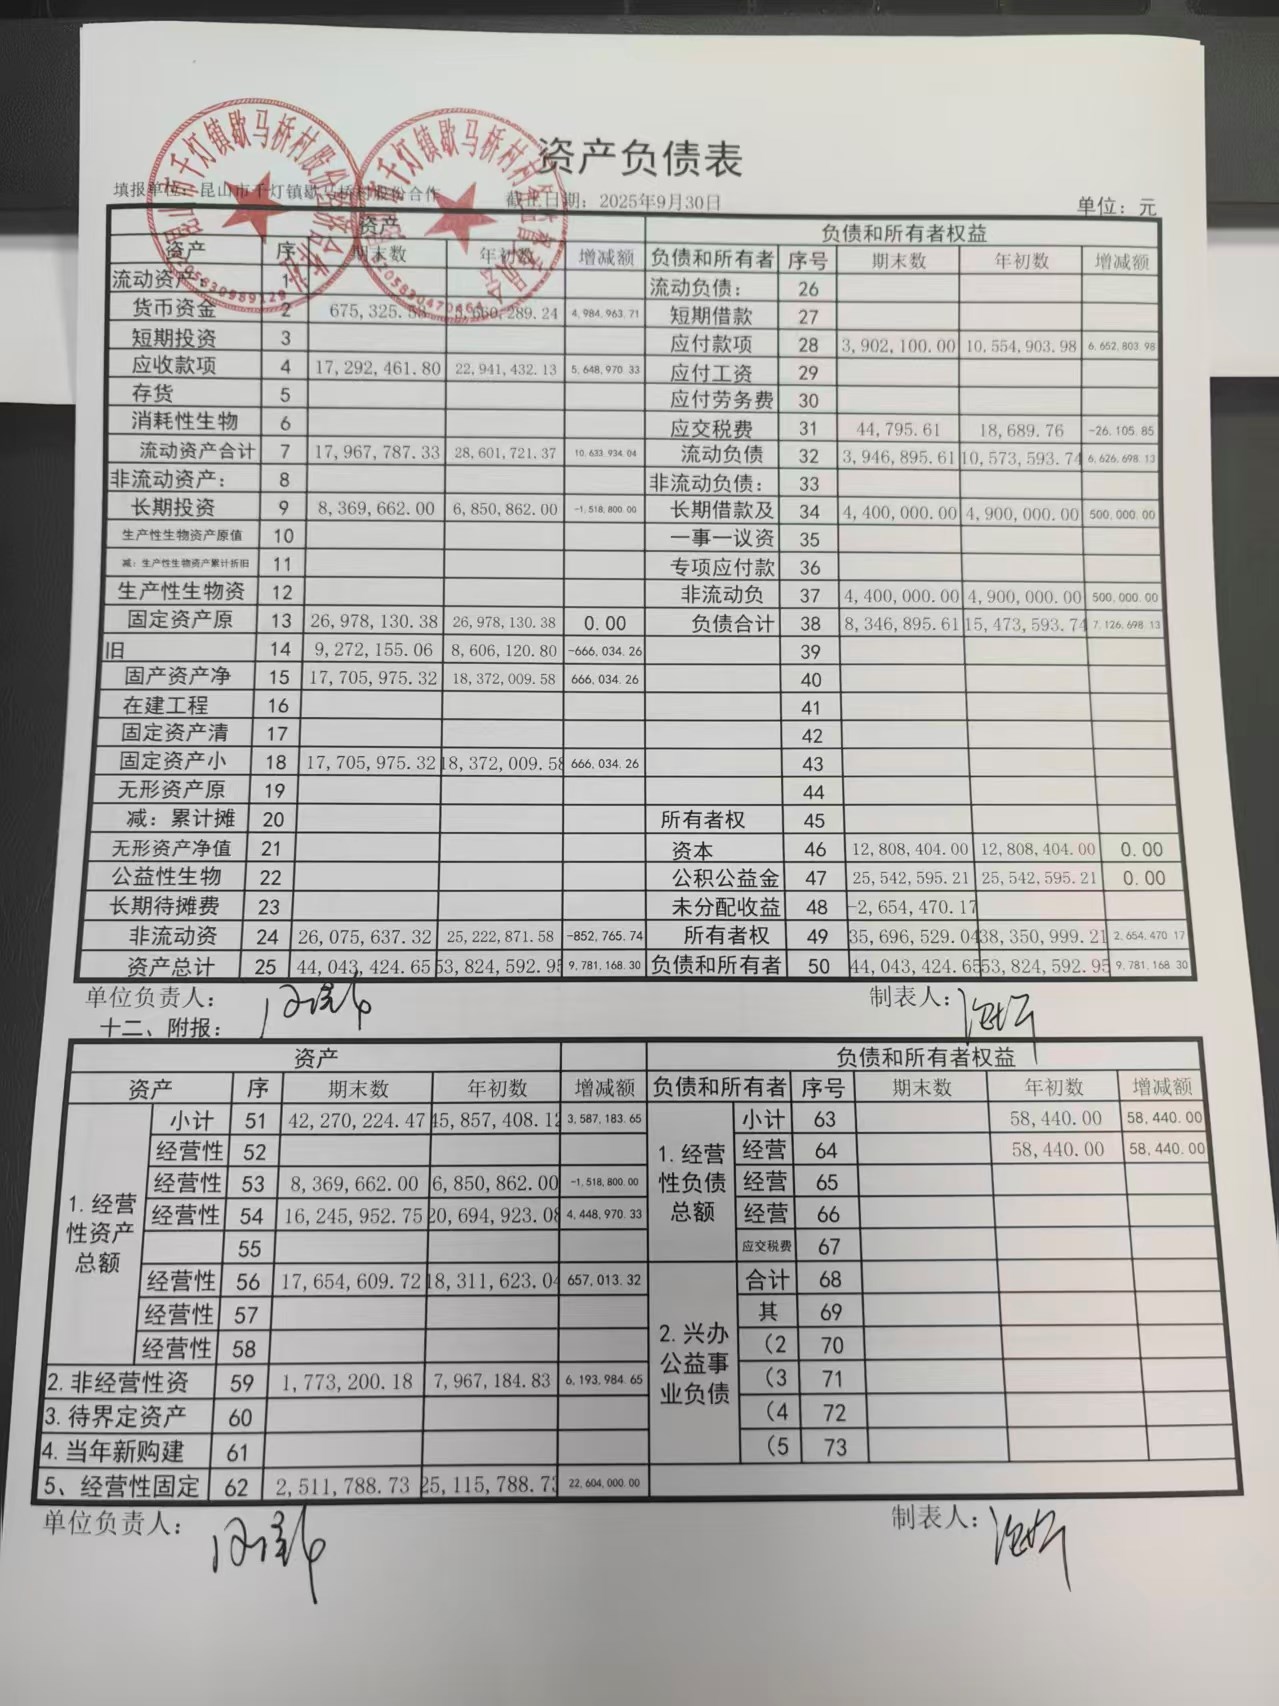 资产负债表
填报单位：昆山市千灯镇歇马桥村股份合作 截止日期：2025年9月30日 单位：元
资产 负债和所有者权益
资产 序 期末数 年初数 增减额 负债和所有者 序号 期末数 年初数 增减额
流动资产： 1 流动负债： 26
货币资金 2 675,325.53 5,660,289.24 4,984,963.71 短期借款 27
短期投资 3 应付款项 28 3,902,100.00 10,554,903.98 6,652,803.98
应收款项 4 17,292,461.80 22,941,432.13 5,648,970.33 应付工资 29
存货 5 应付劳务费 30
消耗性生物 6 应交税费 31 44,795.61 18,689.76 -26,105.85
流动资产合计 7 17,967,787.33 28,601,721.37 10,633,934.04 流动负债 32 3,946,895.61 10,573,593.74 6,626,698.13
非流动资产： 8 非流动负债： 33
长期投资 9 8,369,662.00 6,850,862.00 -1,518,800.00 长期借款及 34 4,400,000.00 4,900,000.00 500,000.00
生产性生物资产原值 10 一事一议资 35
减：生产性生物资产累计折旧 11 专项应付款 36
生产性生物资 12 非流动负 37 4,400,000.00 4,900,000.00 500,000.00
固定资产原 13 26,978,130.38 26,978,130.38 0.00 负债合计 38 8,346,895.61 15,473,593.74 7,126,698.13
旧 14 9,272,155.06 8,606,120.80 -666,034.26 39
固产资产净 15 17,705,975.32 18,372,009.58 666,034.26 40
在建工程 16 41
固定资产清 17 42
固定资产小 18 17,705,975.32 18,372,009.58 666,034.26 43
无形资产原 19 44
减：累计摊 20 所有者权 45
无形资产净值 21 资本 46 12,808,404.00 12,808,404.00 0.00
公益性生物 22 公积公益金 47 25,542,595.21 25,542,595.21 0.00
长期待摊费 23 未分配收益 48 -2,654,470.17
非流动资 24 26,075,637.32 25,222,871.58 -852,765.74 所有者权 49 35,696,529.04 38,350,999.21 2,654,470.17
资产总计 25 44,043,424.65 53,824,592.95 9,781,168.30 负债和所有者 50 44,043,424.65 53,824,592.95 9,781,168.30
单位负责人： 制表人：
十二、附报：
资产 负债和所有者权益
资产 序 期末数 年初数 增减额 负债和所有者 序号 期末数 年初数 增减额
1.经营性资产总额 小计 51 42,270,224.47 45,857,408.12 3,587,183.65 1.经营性负债总额 小计 63 58,440.00 58,440.00
经营性 52 经营 64 58,440.00 58,440.00
经营性 53 8,369,662.00 6,850,862.00 -1,518,800.00 经营 65
经营性 54 16,245,952.75 20,694,923.08 4,448,970.33 经营 66
55 应交税费 67
经营性 56 17,654,609.72 18,311,623.04 657,013.32 2.兴办公益事业负债 合计 68
经营性 57 其 69
经营性 58 （2 70
2.非经营性资 59 1,773,200.18 7,967,184.83 6,193,984.65 （3 71
3.待界定资产 60 （4 72
4.当年新购建 61 （5 73
5、经营性固定 62 2,511,788.73 25,115,788.73 22,604,000.00
单位负责人： 制表人：